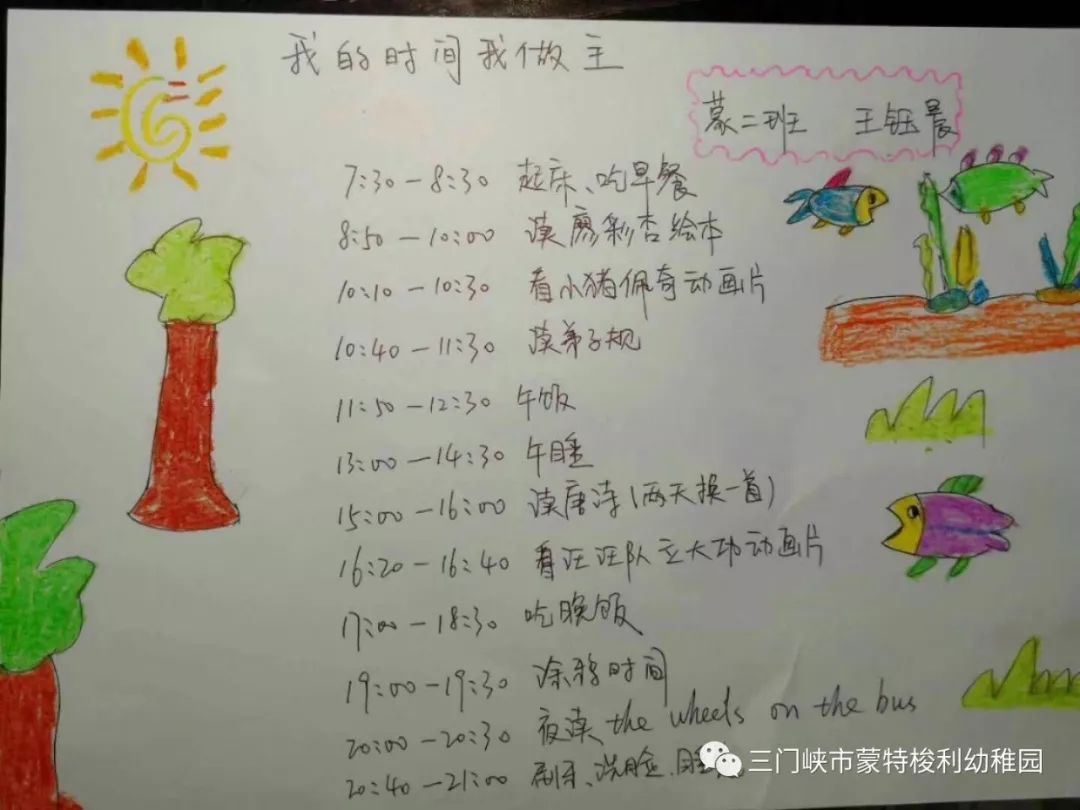 我的时间我做主
蒙二班 王钰晨
7:30-8:30 起床、吃早餐
8:50-10:00 读廖彩杏绘本
10:10-10:30 看小猪佩奇动画片
10:40-11:30 读弟子规
11:50-12:30 午饭
13:00-14:30 午睡
15:00-16:00 读唐诗(两天换一首)
16:20-16:40 看汪汪队立大功动画片
17:00-18:30 吃晚饭
19:00-19:30 涂鸦时间
20:00-20:30 夜读 the wheels on the bus
20:40-21:00 刷牙、洗脸、睡
三门峡市蒙特梭利幼稚园